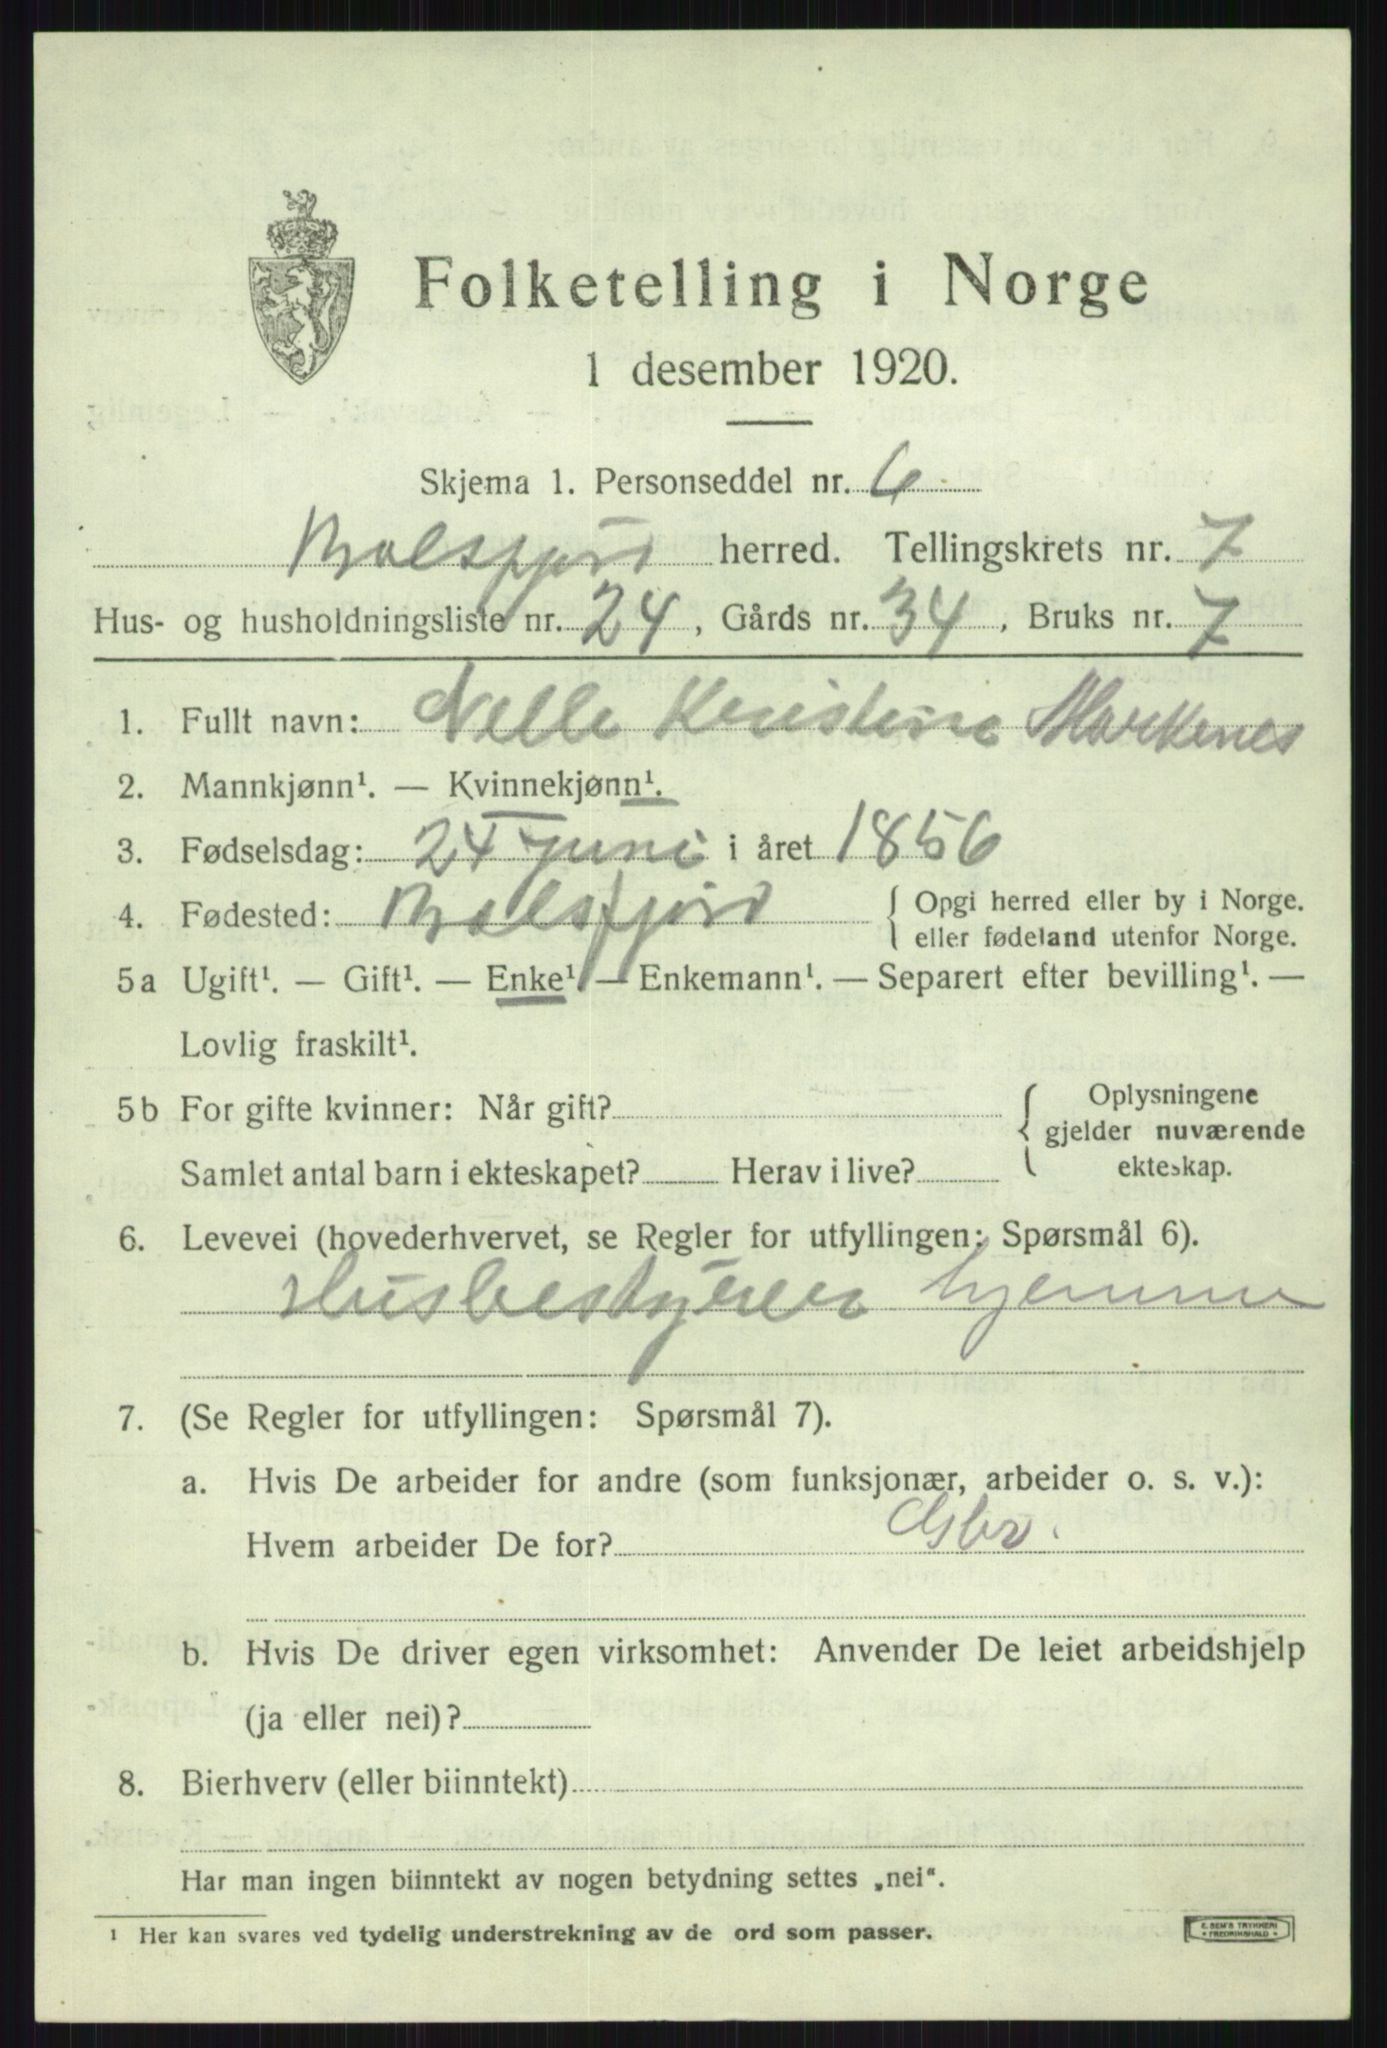 Folketelling i Norge
1 desember 1920.
Skjema 1. Personseddel nr. 6
Balsfjord herred. Tellingskrets nr. 7
Hus- og husholdningsliste nr. 24, Gårds nr. 34, Bruks nr. 7
1. Fullt navn: Nelle Kristine Markenes
2. Mannkjønn¹. — Kvinnekjønn¹.
3. Fødselsdag: 24 juni i året 1856
4. Fødested: Balsfjord { Opgi herred eller by i Norge.
eller fødeland utenfor Norge.
5a Ugift¹. — Gift¹. — Enke¹ — Enkemann¹. — Separert efter bevilling¹. —
Lovlig fraskilt¹.
5b For gifte kvinner: Når gift? { Oplysningene
gjelder nuværende
Samlet antal barn i ekteskapet? Herav i live? ekteskap.
6. Levevei (hovederhvervet, se Regler for utfyllingen: Spørsmål 6).
Husbestyrer hjemme
7. (Se Regler for utfyllingen: Spørsmål 7).
a. Hvis De arbeider for andre (som funksjonær, arbeider o. s. v.):
Hvem arbeider De for? Gbr.
b. Hvis De driver egen virksomhet: Anvender De leiet arbeidshjelp
(ja eller nei)?
8. Bierhverv (eller biinntekt)
Har man ingen biinntekt av nogen betydning settes „nei“.
¹ Her kan svares ved tydelig understrekning av de ord som passer.
E. SEM'S TRYKKERI
• FREDRIKSHALD •